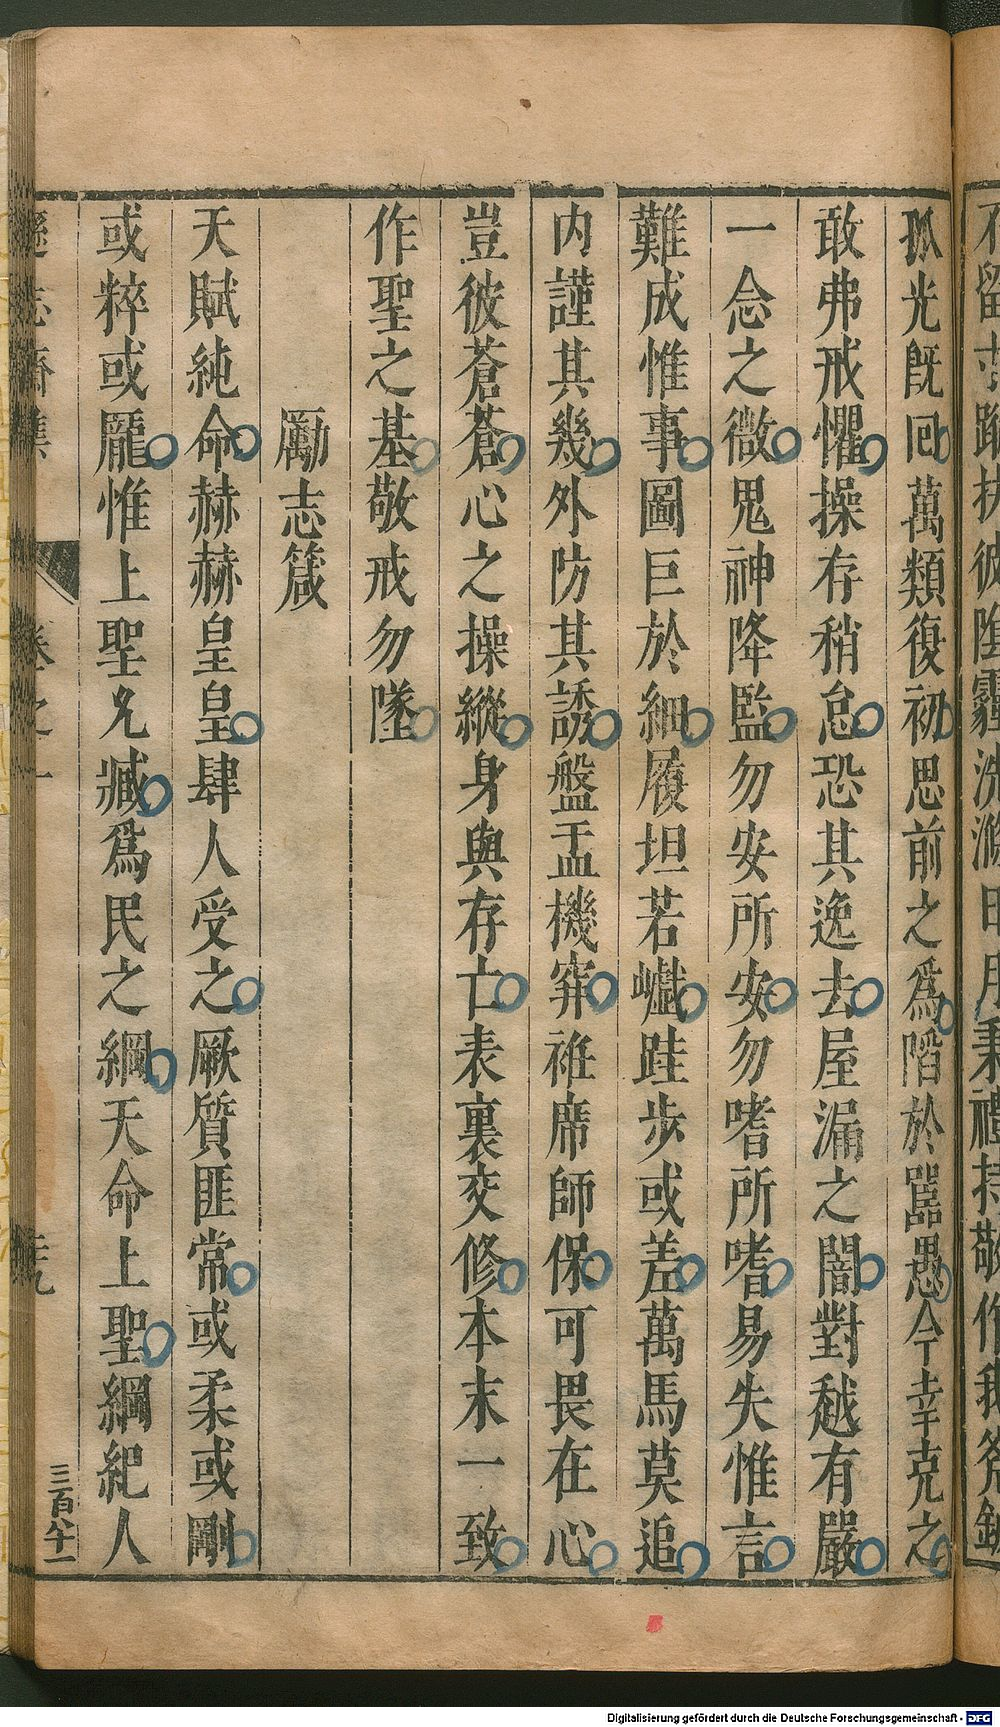 不留𠮷蹤扶彼陰霾洗滌日月秉禮持敬作我斧鉞
孤光旣回萬類復初思前之爲陷於嚚愚今幸克之
敢弗戒懼操存稍怠恐其逸去屋漏之闇對越有嚴
一念之微鬼神降監勿安所安勿嗜所嗜易失惟言
難成惟事圖巨於細履坦若巇跬步或差萬馬莫追
内謹其幾外防其誘盤盂機穽袵席師保可畏在心
豈彼蒼蒼心之操縱身與存亡表裏交修本末一致
作聖之基敬戒勿墜
勵志箴
天賦純命赫赫皇皇肆人受之厥質匪常或柔或剛
或粹或龐惟上聖允臧爲民之綱天命上聖綱紀人
遜志齋集
卷之一
三百八十一
Digitalisierung gefördert durch die Deutsche Forschungsgemeinschaft - DFG